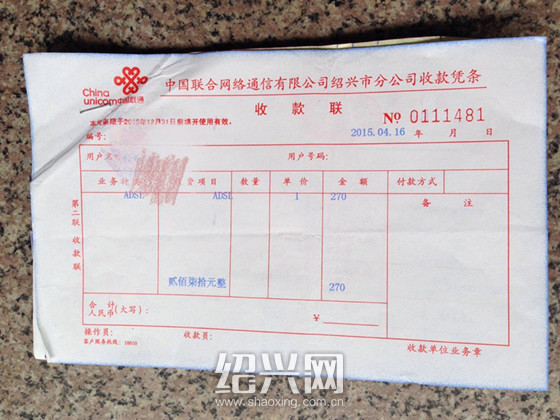 China
unicom中国联通
中国联合网络通信有限公司绍兴市分公司收款凭条
收款联
本凭条限于2015年12月31日前填开使用有效。
№ 0111481
编号:
2015.04.16 年 月 日
用户名
用户号码:
业务种 资项目 数量 单价 金额 付款方式
ADSL ADSL 1 270
备注
第二联 收款联
贰佰柒拾元整 270
合计
人民币(大写): ¥
操作员: 收款员:
客户服务热线: 10010
收款单位业务章
绍兴网
www.shaoxing.com.cn